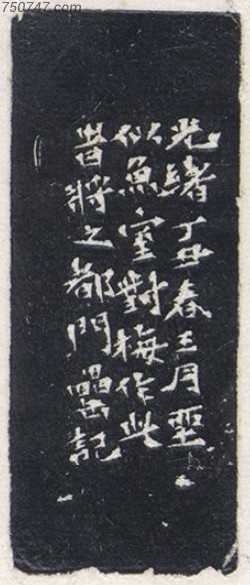 750747.com
光緒丁丑春王月朢
似魚室對梅作此
旹將之都門罍記